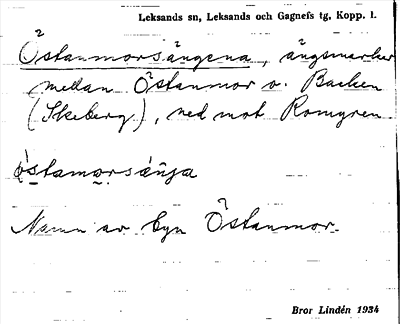 Leksands sn, Leksands och Gagnefs tg, Kopp. l.
Östanmorsängena, ängsmarker
mellan Östanmor o. Backen
(Skeberg), ned mot Romyren.
östamorsänja
Namn av byn Östanmor.
Bror Lindén 1934